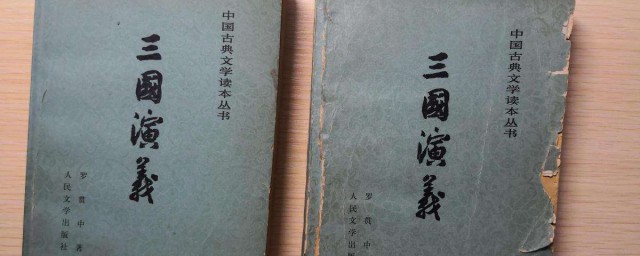 中国古典文学读本丛书
三國演義
罗贯中著
人民文学出版社
中国古典文学读本丛书
三國演義
罗贯中
人民文学出版